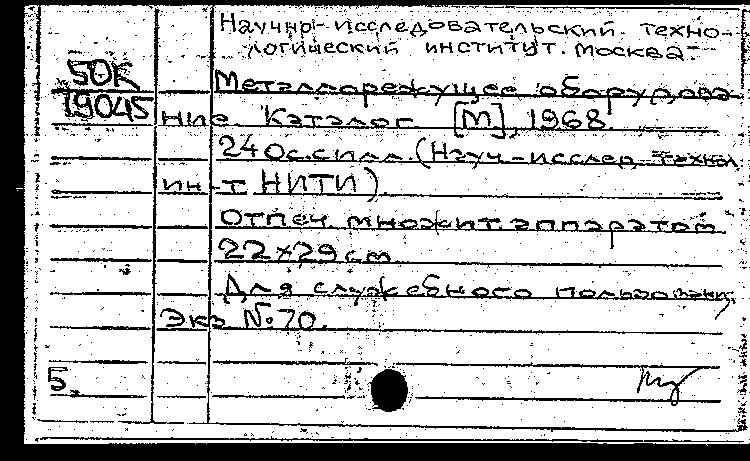 Научно-исследовательский. техно-
логический институт. Москва.
50К
19045
Металлорежущее оборудова-
ние. Каталог. [М], 1968.
24 с. с илл. (Науч.-исслед. технол.
ин-т НИТИ).
Отпеч. множит. аппаратом
22×29 см
Для служебного пользования.
Экз. № 70.
5.